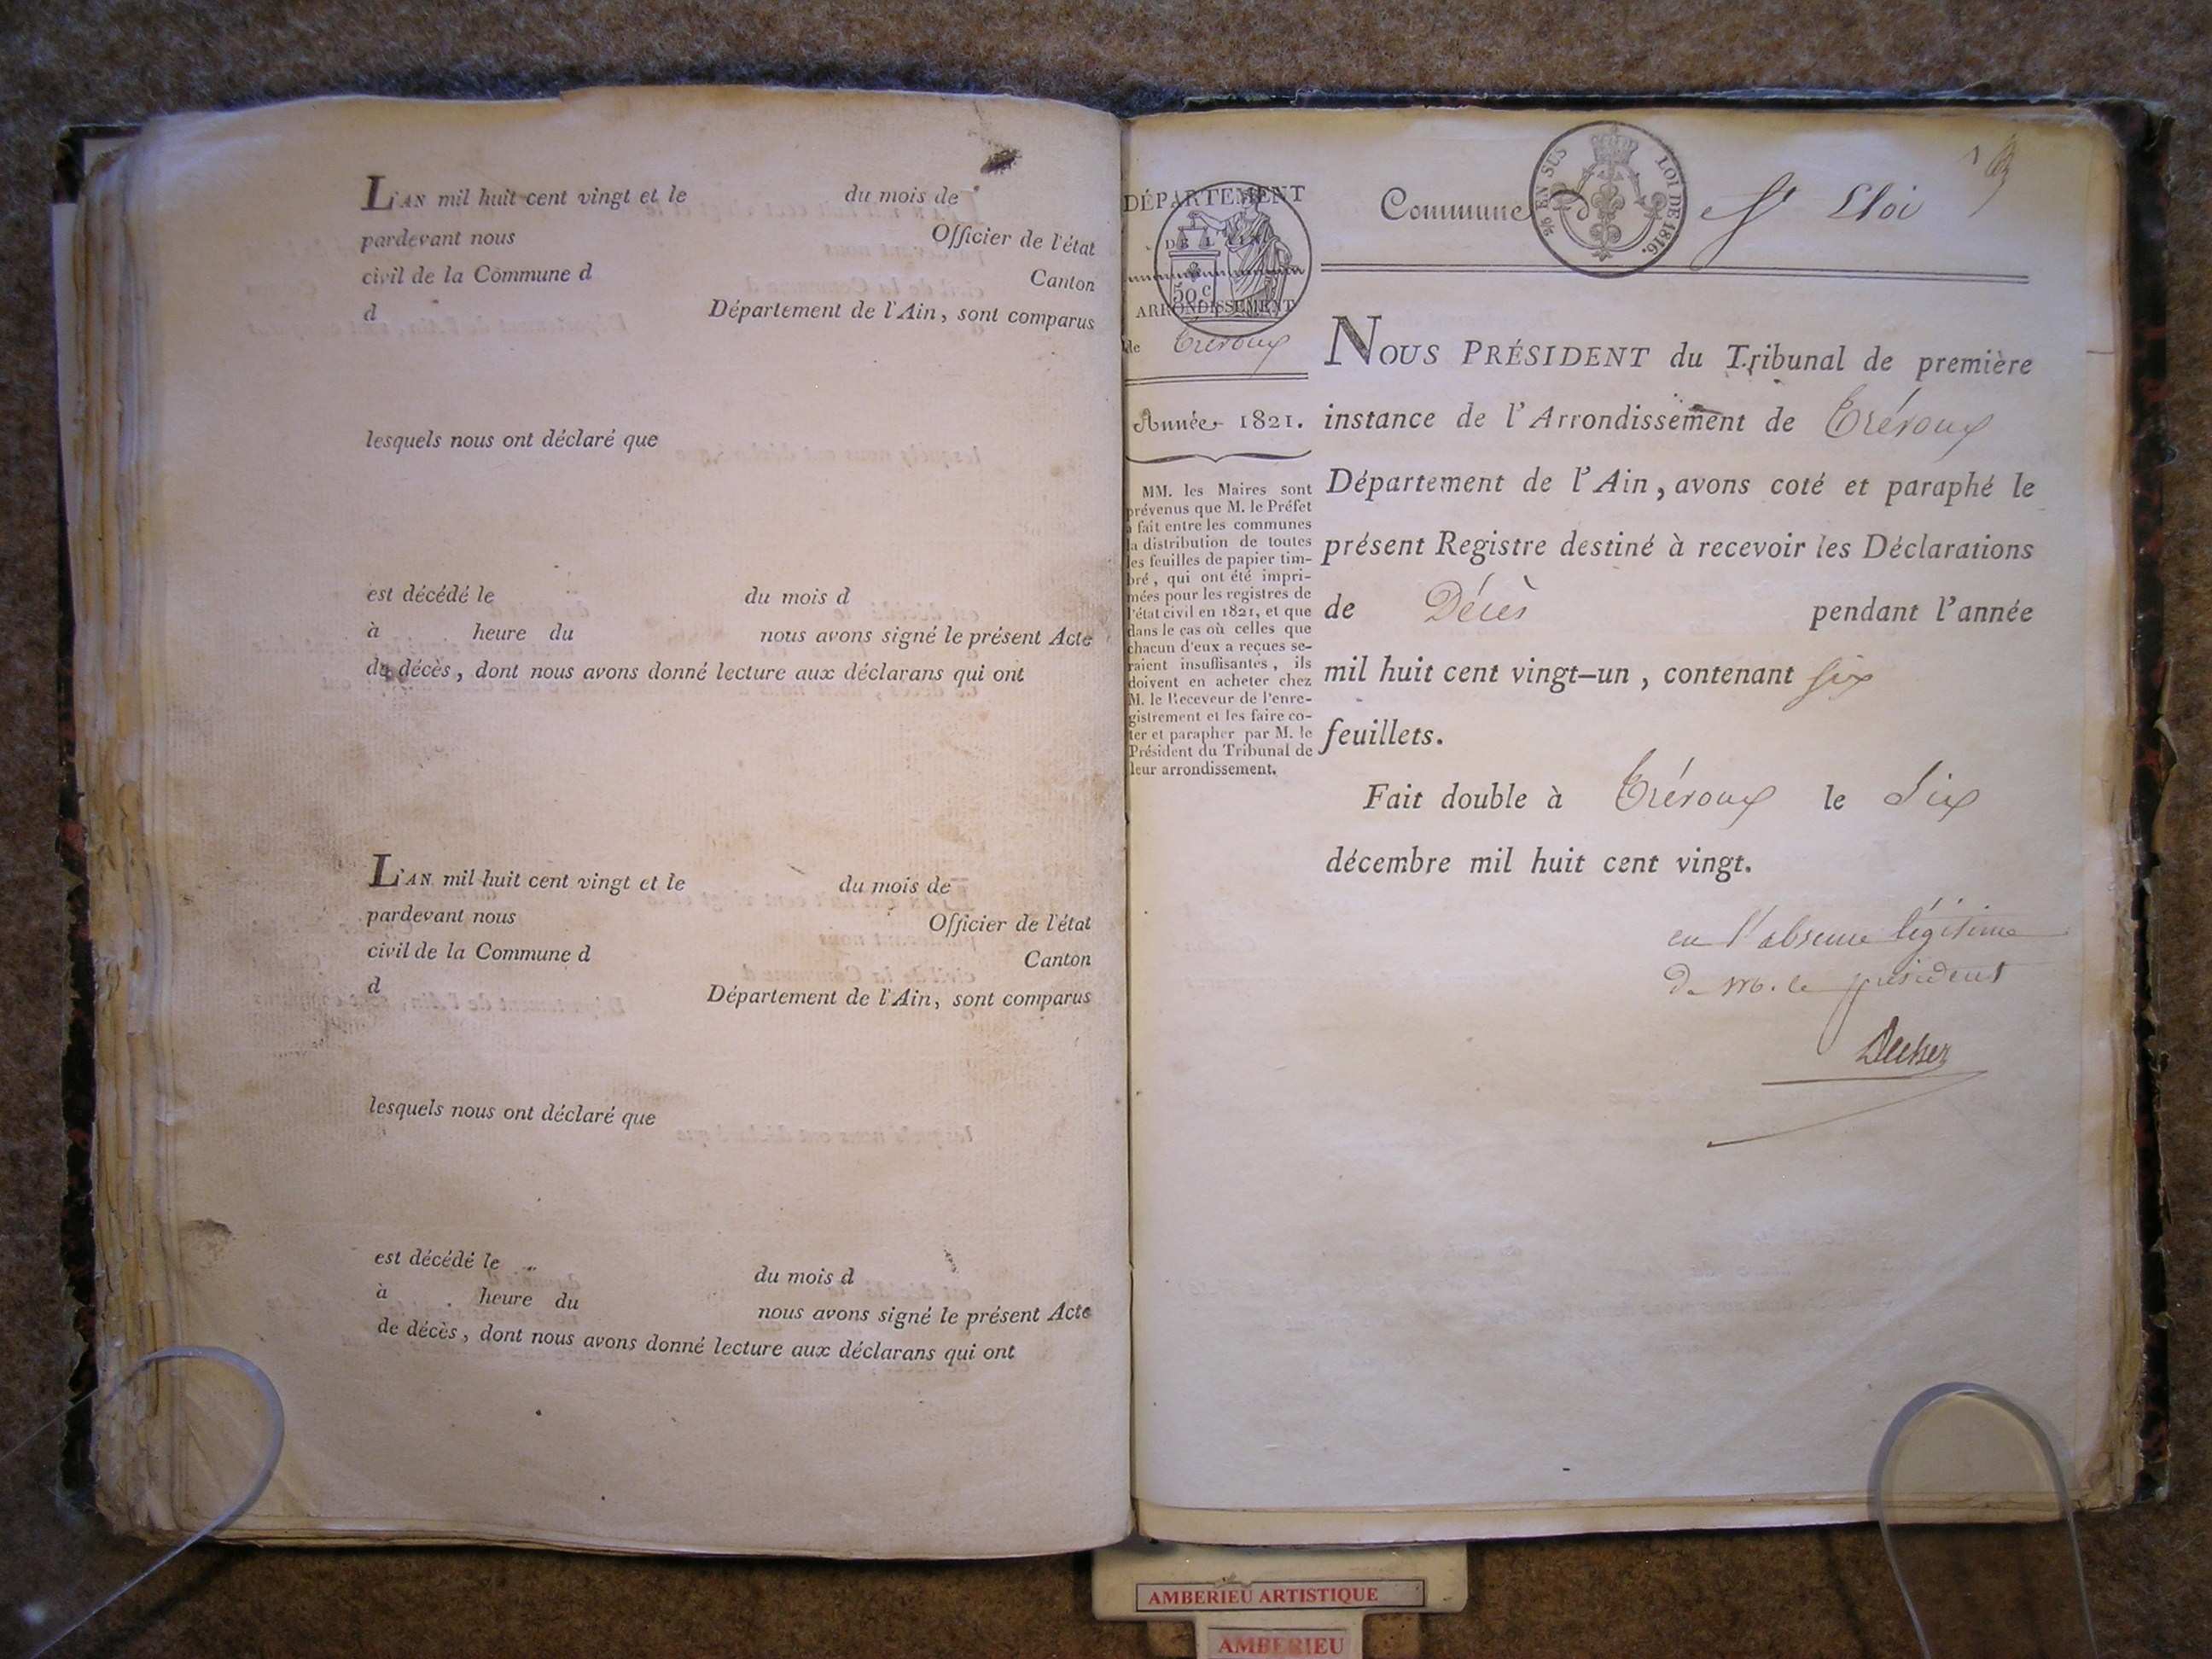 L'AN mil huit cent vingt et le du mois de
pardevant nous Officier de l'état
civil de la Commune d Canton
d Département de l'Ain, sont comparus
lesquels nous ont déclaré que
est décédé le du mois d
à heure du nous avons signé le présent Acte
de décès, dont nous avons donné lecture aux déclarans qui ont
L'AN mil huit cent vingt et le du mois de
pardevant nous Officier de l'état
civil de la Commune d Canton
d Département de l'Ain, sont comparus
lesquels nous ont déclaré que
est décédé le du mois d
à heure du nous avons signé le présent Acte
de décès, dont nous avons donné lecture aux déclarans qui ont
DÉPARTEMENT
DE L'AIN
50 c
ARRONDISSEMENT
de Trévoux
Année 1821.
MM. les Maires sont
prévenus que M. le Préfet
a fait entre les communes
la distribution de toutes
les feuilles de papier tim-
bré, qui ont été impri-
mées pour les registres de
l'état civil en 1821, et que
dans le cas où celles que
chacun d'eux a reçues se-
raient insuffisantes, ils
doivent en acheter chez
M. le Receveur de l'enre-
gistrement et les faire co-
ter et parapher par M. le
Président du Tribunal de
leur arrondissement.
EN SUS LOI DE 1816.
Commune St Eloi
NOUS PRÉSIDENT du Tribunal de première
instance de l'Arrondissement de Trévoux
Département de l'Ain, avons coté et paraphé le
présent Registre destiné à recevoir les Déclarations
de Décès pendant l'année
mil huit cent vingt-un, contenant six
feuillets.
Fait double à Trévoux le Six
décembre mil huit cent vingt.
en l'absence légitime
de M. le président
AMBERIEU ARTISTIQUE
AMBERIEU